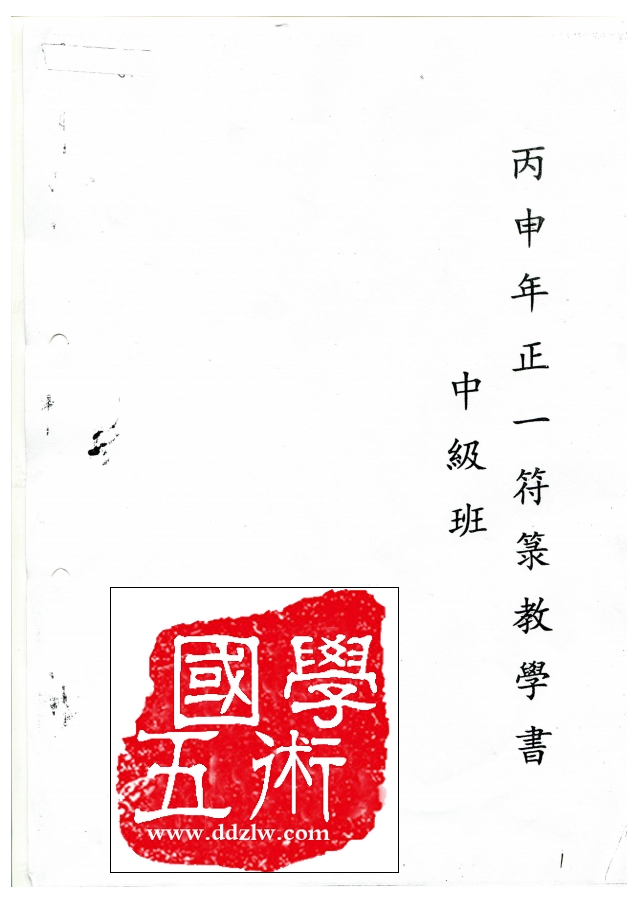 丙申年正一符籙教學書
中級班
國學
五術
www.ddzlw.com
1